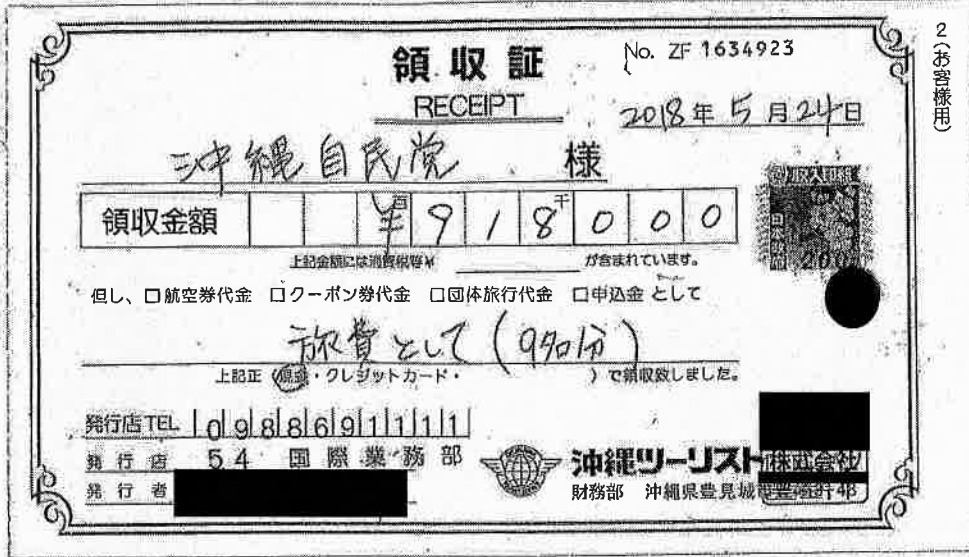 2(お客様用)
領収証
No. ZF 1634923
RECEIPT
2018年5月24日
沖縄自民党 様
領収金額 ¥918000
百 千
収入印紙
200
上記金額には消費税等¥ が含まれています。
但し、□航空券代金 □クーポン券代金 □団体旅行代金 □申込金 として
旅費として(9名分)
上記正(現金・クレジットカード・ )で領収致しました。
発行店TEL 0988691111
発行店 54 国際業務部
発行者
沖縄ツーリスト株式会社
財務部 沖縄県豊見城市